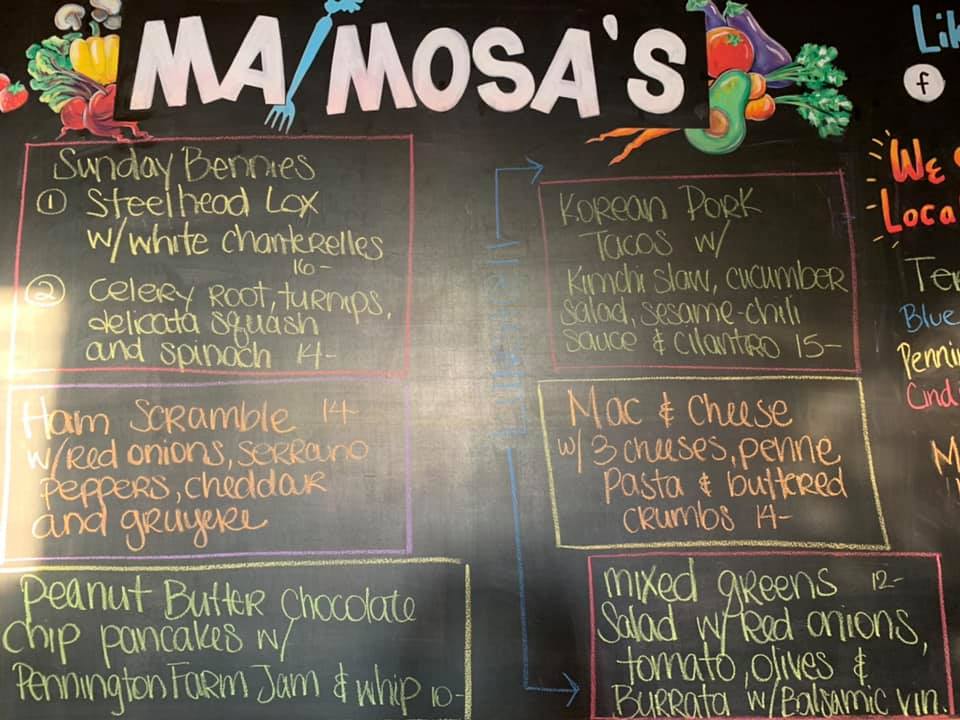 MA/MOSA'S
Sunday Bennies
① Steelhead Lox
w/white chanterelles
16-
② Celery Root, turnips,
delicata squash
and spinach 14-
Ham Scramble 14-
w/Red onions, serrano
peppers, cheddar
and gruyere
Peanut Butter Chocolate
chip pancakes w/
Pennington Farm Jam & whip 10-
Korean Pork
Tacos w/
Kimchi slaw, cucumber
salad, sesame-chili
sauce & cilantro 15-
Mac & Cheese
w/ 3 cheeses, penne
pasta & buttered
crumbs 14-
mixed greens 12-
Salad w/Red onions,
tomato, olives &
Burrata w/Balsamic vin.
Lik
f
We
Loca
Te
Blue
Pennin
Cind
M